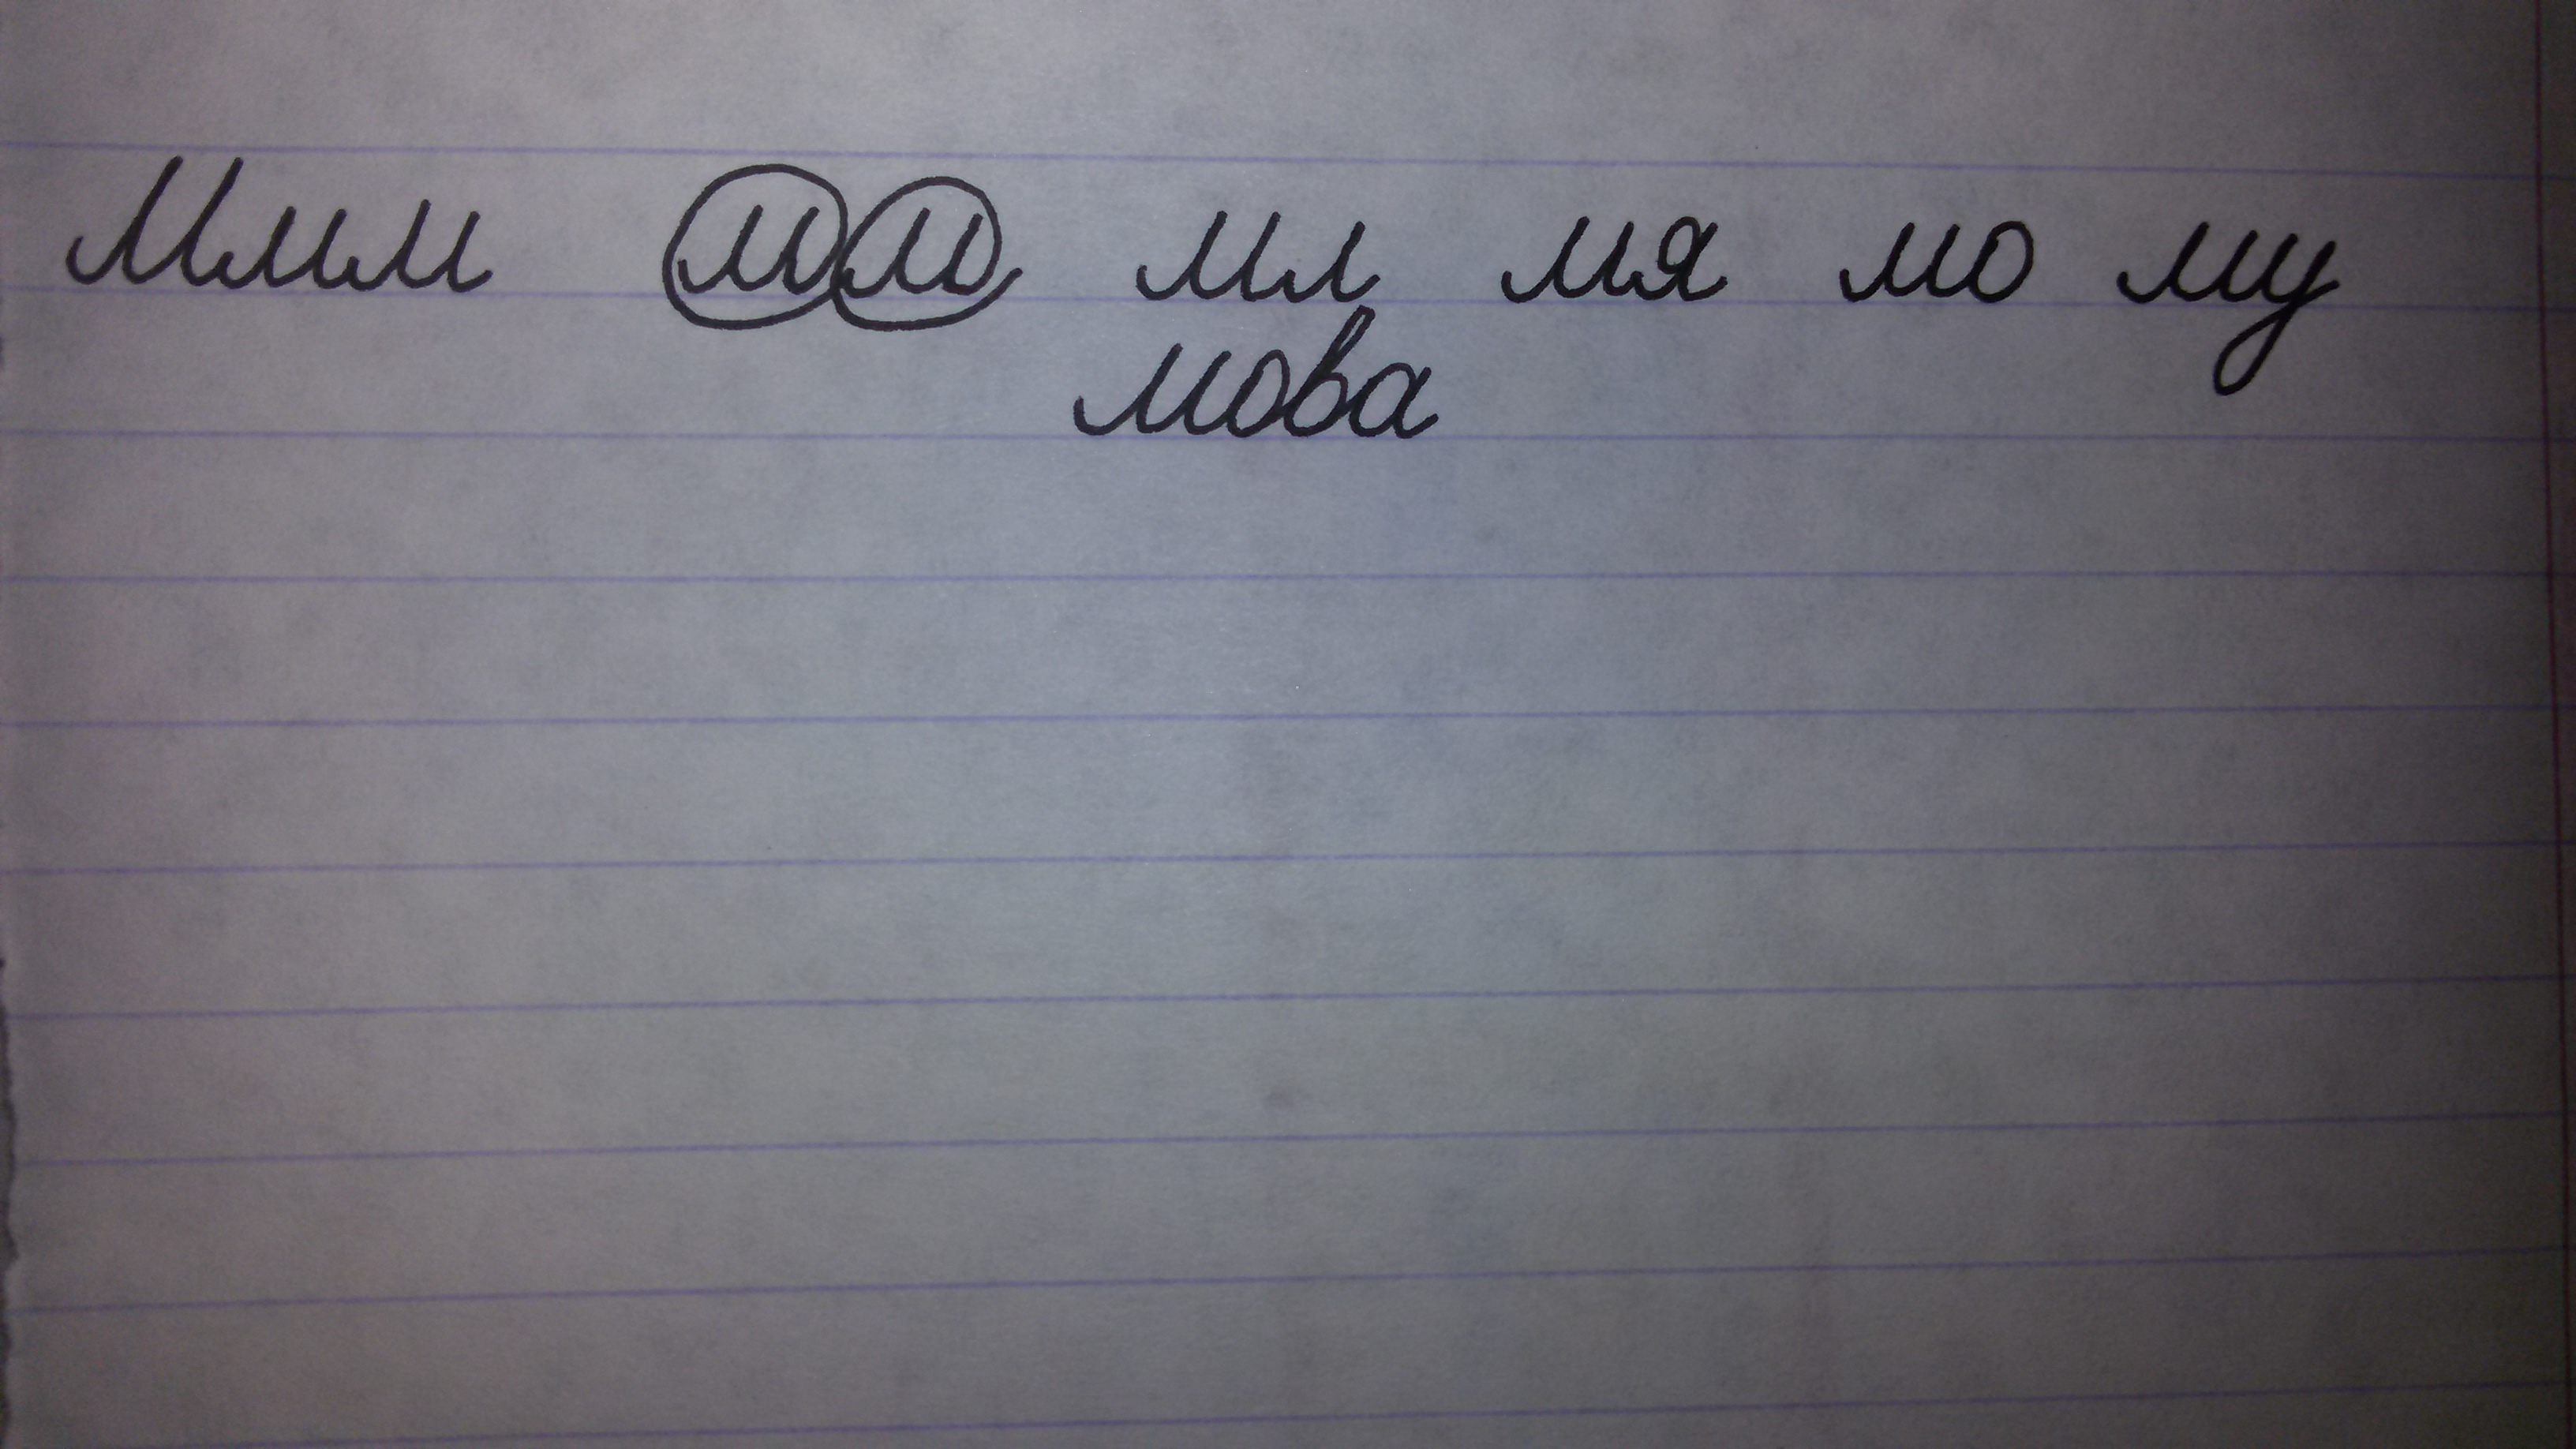 Ммм мм мл мя мо му
мова